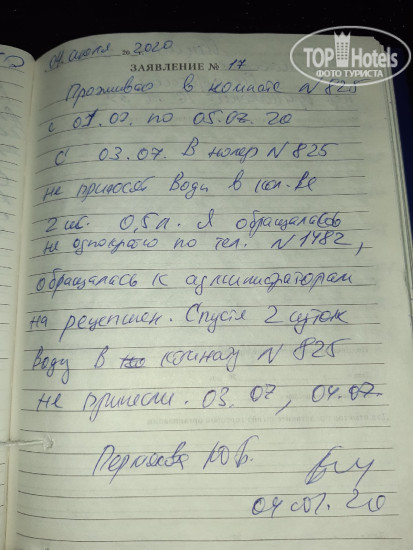 TOP Hotels
ФОТО ТУРИСТА
04 июля 2020
ЗАЯВЛЕНИЕ № 17
Проживаю в комнате N 825
с 01.07. по 05.07.20
С 03.07. В номер N 825
не приносят воду в кол-ве
2 шт. 0,5 л. Я обращалась
не однократно по тел. N 1482,
обращалась к администраторам
на рецепшен. Спустя 2 суток
воду в комнату N 825
не принесли. 03.07, 04.07.
Ю.Б.
04.07.20